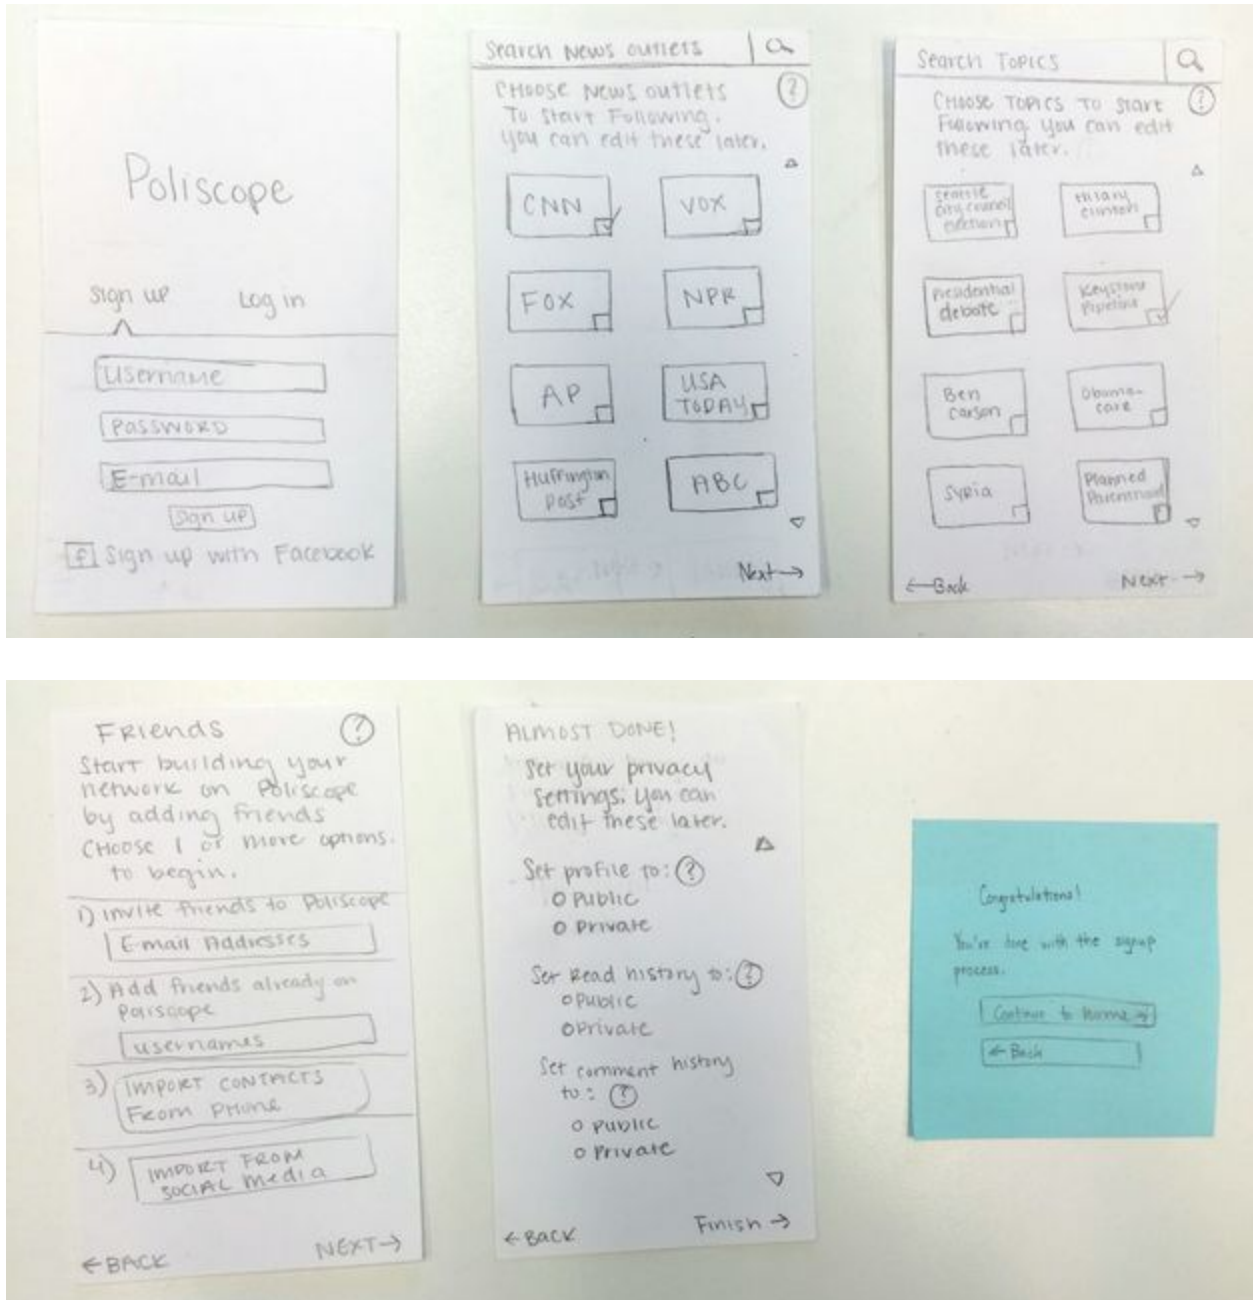 Poliscope
Sign up
Log in
Username
Password
E-mail
Sign up
f Sign up with Facebook
Search News outlets
Choose News outlets
To Start Following.
you can edit these later.
?
CNN
VOX
FOX
NPR
AP
USA
TODAY
Huffington
Post
ABC
Next →
Search Topics
Choose Topics to start
Following. you can edit
these later.
?
Seattle
city council
election
Hilary
clinton
Presidential
debate
Keystone
Pipeline
Ben
Carson
Obama-
care
Syria
Planned
Parenthood
← Back
Next →
Friends
?
Start building your
network on Poliscope
by adding friends
Choose 1 or more options.
to begin.
1) Invite friends to Poliscope
E-mail Addresses
2) Add friends already on
Poliscope
usernames
3) IMPORT CONTACTS
From Phone
4) IMPORT FROM
SOCIAL media
← BACK
NEXT →
ALMOST DONE!
Set your privacy
settings. you can
edit these later.
Set profile to: ?
Public
Private
Set Read history to: ?
Public
Private
Set comment history
to: ?
Public
Private
← BACK
Finish →
Congratulations!
You're done with the signup
process.
Continue to home →
← Back